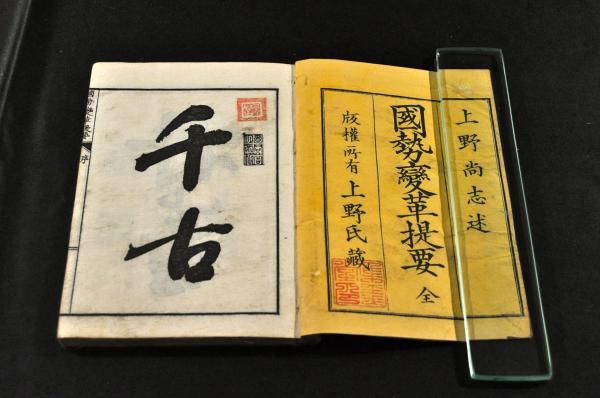 上野尚志述
國勢變革提要 全
版權所有 上野氏藏
千古
序